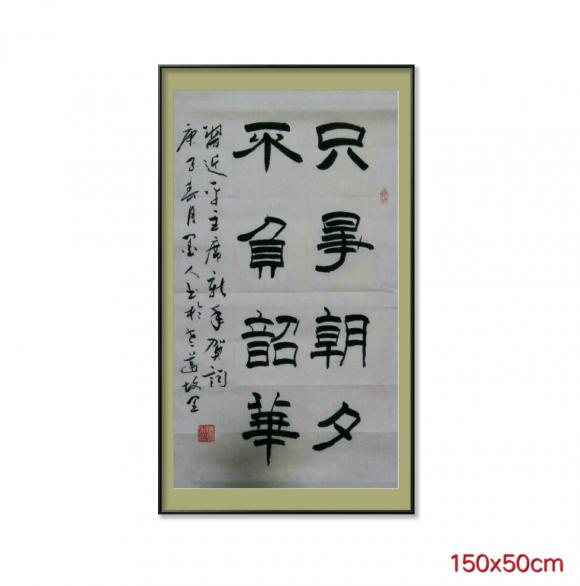 只爭朝夕
不負韶華
習近平主席新年贺詞
庚子春月墨人书於故里
150x50cm